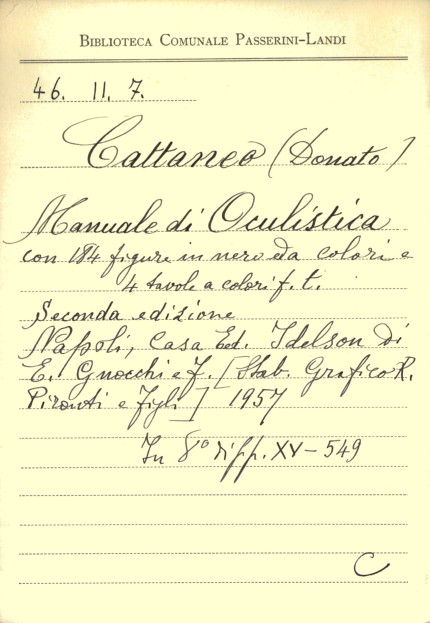 BIBLIOTECA COMUNALE PASSERINI-LANDI
46. 11. 7.
Cattaneo (Donato)
Manuale di Oculistica
con 184 figure in nero e da colori e
4 tavole a colori f. t.
Seconda edizione
Napoli, Casa Ed. Idelson di
E. Gnocchi e F. [Stab. Grafico R.
Pironti e Figli] 1957
In 8° di pp. XV-549
C